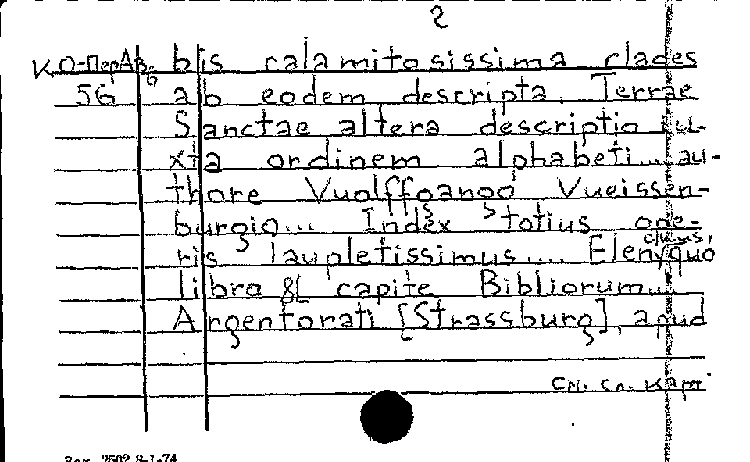 2
К.О-ПерАр6 bis calamitosissima clades
56 ab eodem descripta. Terrae
Sanctae altera descriptio iu-
xta ordinem alphabeti... au-
thore Vuolffgango Vueissen-
burgio... Index totius ope-
ris laupletissimus.... Elenchus, quo
libro & capite Bibliorum...
Argentorati [Strassburg], apud
См. сл. карт
Зак. 2502 8-1-74